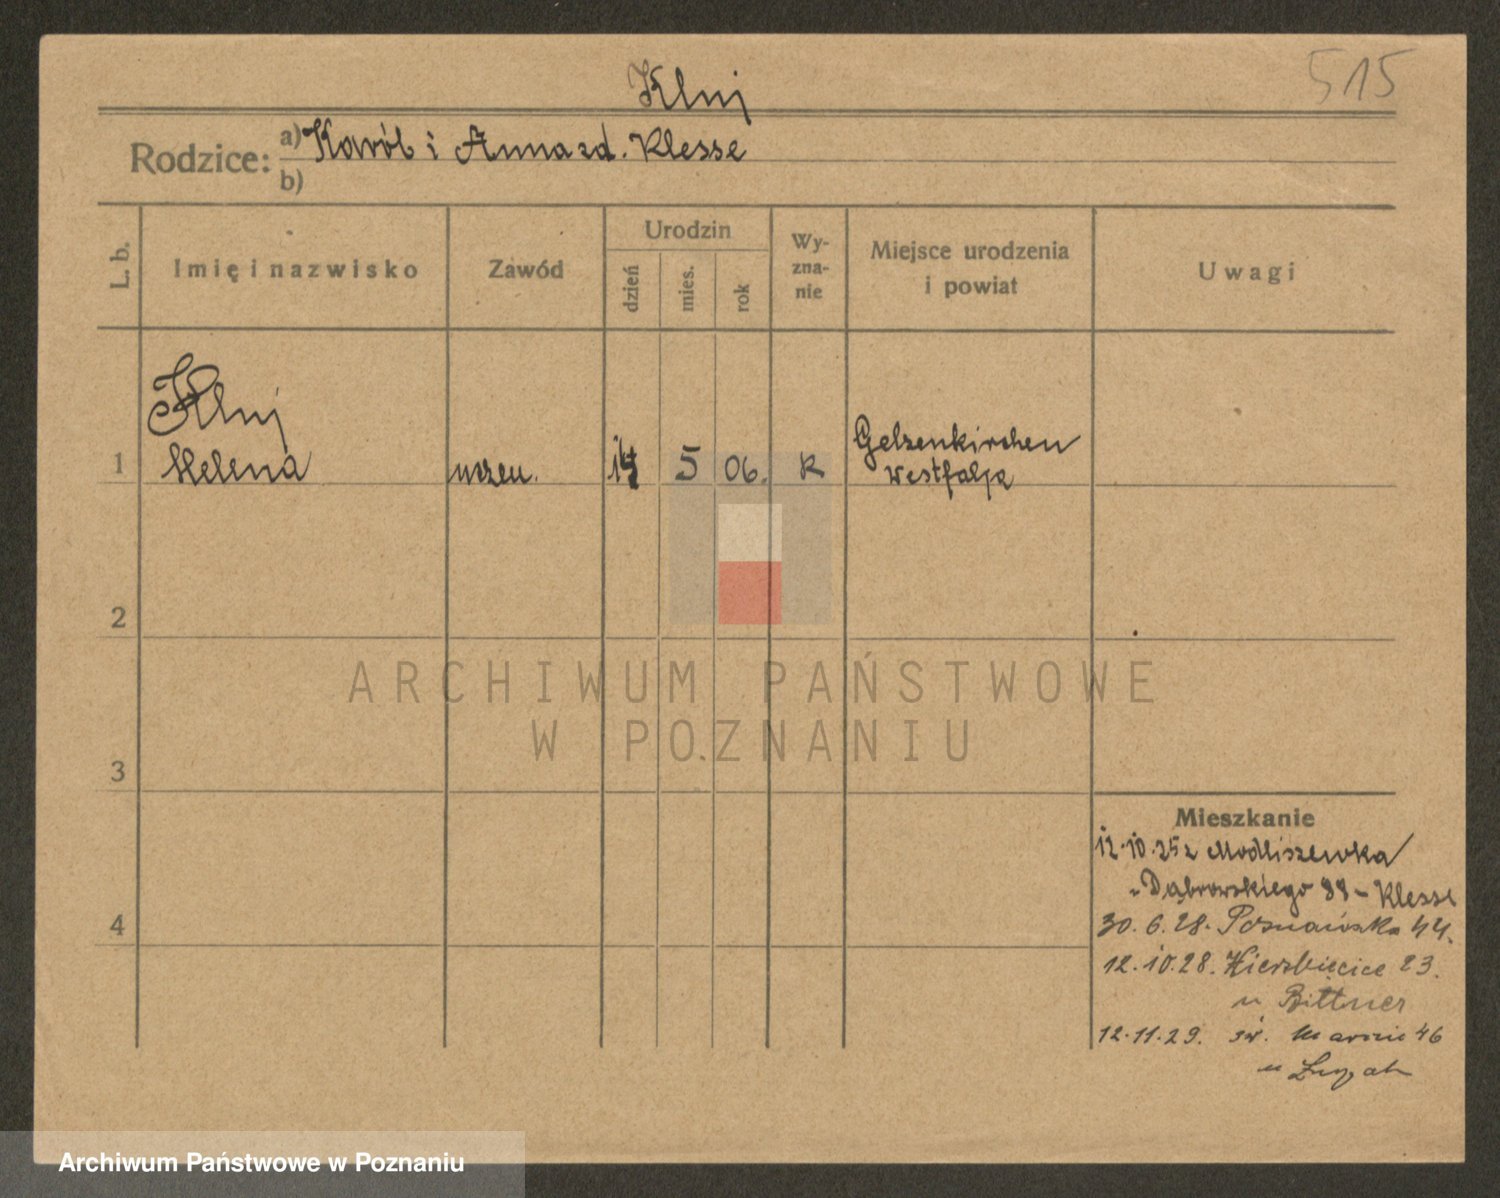 515
Kluj
Rodzice: a) Karól i Anna zd. Klesse
b)
L. b. Imię i nazwisko Zawód Urodzin dzień mies. rok Wy-zna-nie Miejsce urodzenia i powiat Uwagi
Kluj
1 Helena uczen. 14 5 06. K Gelsenkirchen
Westfalja
2
3
4
Mieszkanie
12.10.25 z Modliszewka
Dąbrowskiego 88 - Klesse
30.6.28. Poznańska 44.
12.10.28. Wierzbięcice 23.
u Bittner
12.11.29. św. Marcin 46
u
ARCHIWUM PAŃSTWOWE
W POZNANIU
Archiwum Państwowe w Poznaniu